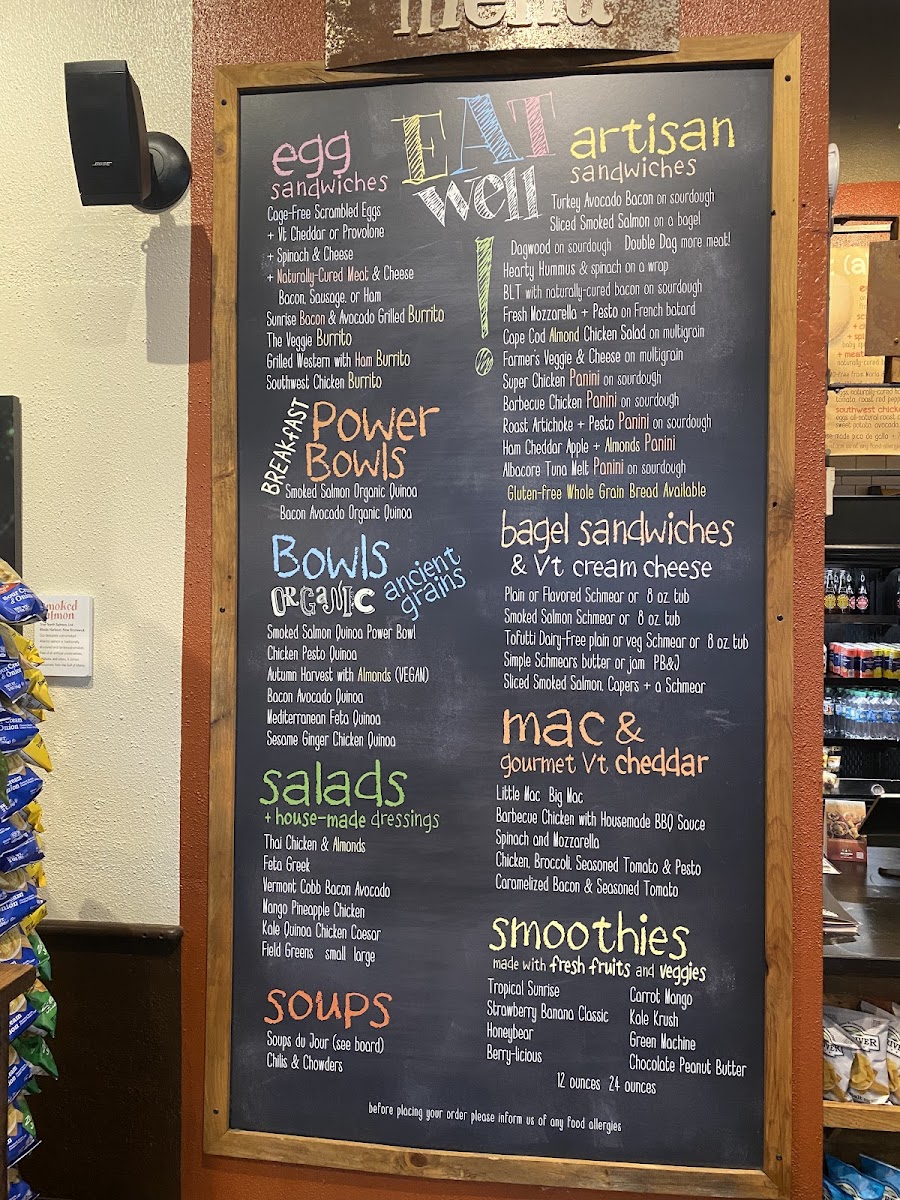 menu
BOSE
EAT
well
!
egg
sandwiches
Cage-Free Scrambled Eggs
+ Vt Cheddar or Provolone
+ Spinach & Cheese
+ Naturally-Cured Meat & Cheese
Bacon, Sausage, or Ham
Sunrise Bacon & Avocado Grilled Burrito
The Veggie Burrito
Grilled Western with Ham Burrito
Southwest Chicken Burrito
BREAKFAST
Power
Bowls
Smoked Salmon Organic Quinoa
Bacon Avocado Organic Quinoa
Bowls
ORGANIC
ancient
grains
Smoked Salmon Quinoa Power Bowl
Chicken Pesto Quinoa
Autumn Harvest with Almonds (VEGAN)
Bacon Avocado Quinoa
Mediterranean Feta Quinoa
Sesame Ginger Chicken Quinoa
salads
+ house-made dressings
Thai Chicken & Almonds
Feta Greek
Vermont Cobb Bacon Avocado
Mango Pineapple Chicken
Kale Quinoa Chicken Caesar
Field Greens small large
soups
Soups du Jour (see board)
Chilis & Chowders
artisan
sandwiches
Turkey Avocado Bacon on sourdough
Sliced Smoked Salmon on a bagel
Dagwood on sourdough Double Dag more meat!
Hearty Hummus & spinach on a wrap
BLT with naturally-cured bacon on sourdough
Fresh Mozzarella + Pesto on French batard
Cape Cod Almond Chicken Salad on multigrain
Farmer's Veggie & Cheese on multigrain
Super Chicken Panini on sourdough
Barbecue Chicken Panini on sourdough
Roast Artichoke + Pesto Panini on sourdough
Ham Cheddar Apple + Almonds Panini
Albacore Tuna Melt Panini on sourdough
Gluten-free Whole Grain Bread Available
bagel sandwiches
& Vt cream cheese
Plain or Flavored Schmear or 8 oz. tub
Smoked Salmon Schmear or 8 oz. tub
Tofutti Dairy-Free plain or veg Schmear or 8 oz. tub
Simple Schmears butter or jam PB&J
Sliced Smoked Salmon, Capers + a Schmear
mac &
gourmet Vt cheddar
Little Mac Big Mac
Barbecue Chicken with Housemade BBQ Sauce
Spinach and Mozzarella
Chicken, Broccoli, Seasoned Tomato & Pesto
Caramelized Bacon & Seasoned Tomato
smoothies
made with fresh fruits and veggies
Tropical Sunrise
Strawberry Banana Classic
Honeybear
Berry-licious
Carrot Mango
Kale Krush
Green Machine
Chocolate Peanut Butter
12 ounces 24 ounces
before placing your order please inform us of any food allergies
smoked
salmon
southwest chick